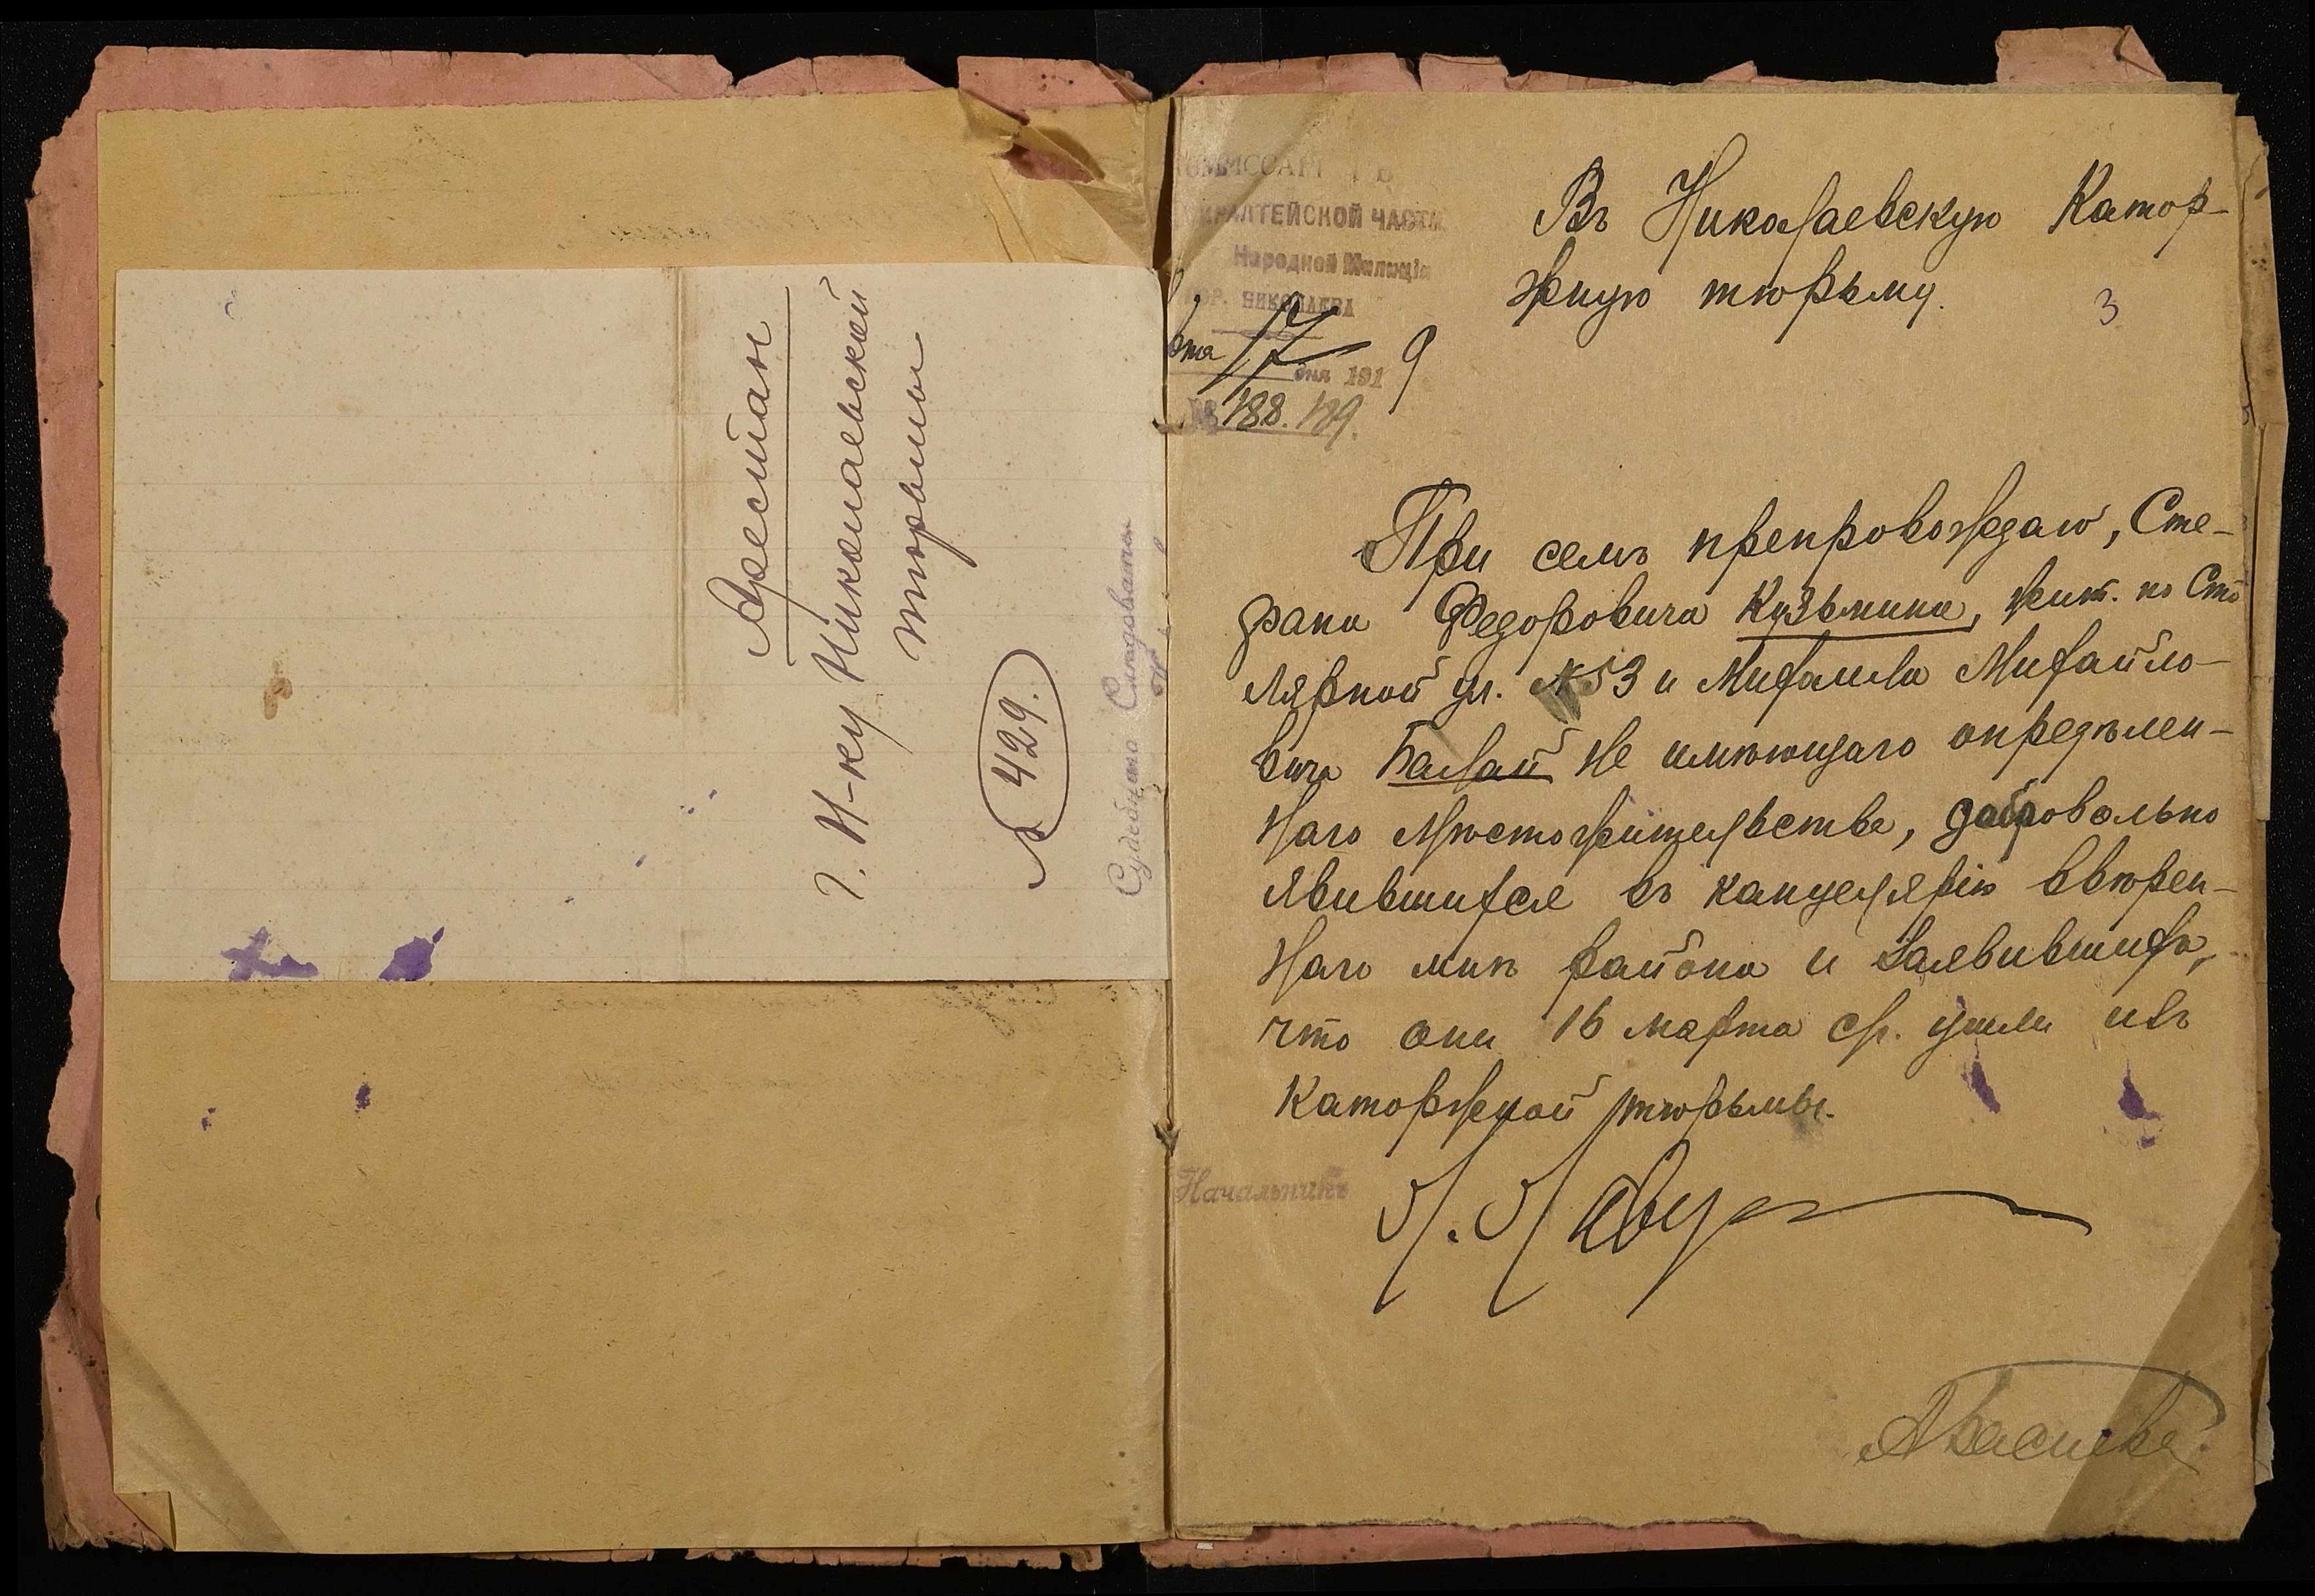 Арестан
Г. Н-ку Николаевской
тюрьмы
№ 429.
Судебнаго Следователя
КОММИССАРІ
АДМИРАЛТЕЙСКОЙ ЧАСТИ
Народной Милиціи
ГОР. НИКОЛАЕВА
17
дня 1919
№ 188.189.
Въ Николаевскую Катор-
жную тюрьму.
3
При семъ препровождаю, Сте-
фана Федоровича Кузьмина, жит. по Сто
лярной ул. №53 и Михаила Михайло-
вича Балай не имѣющаго опредѣлен-
наго мѣстожительства, добровольно
явившихся въ канцелярію ввѣрен-
наго мнѣ района и заявившихъ,
что они 16 марта с/г. ушли изъ
каторжной тюрьмы.
Начальникъ